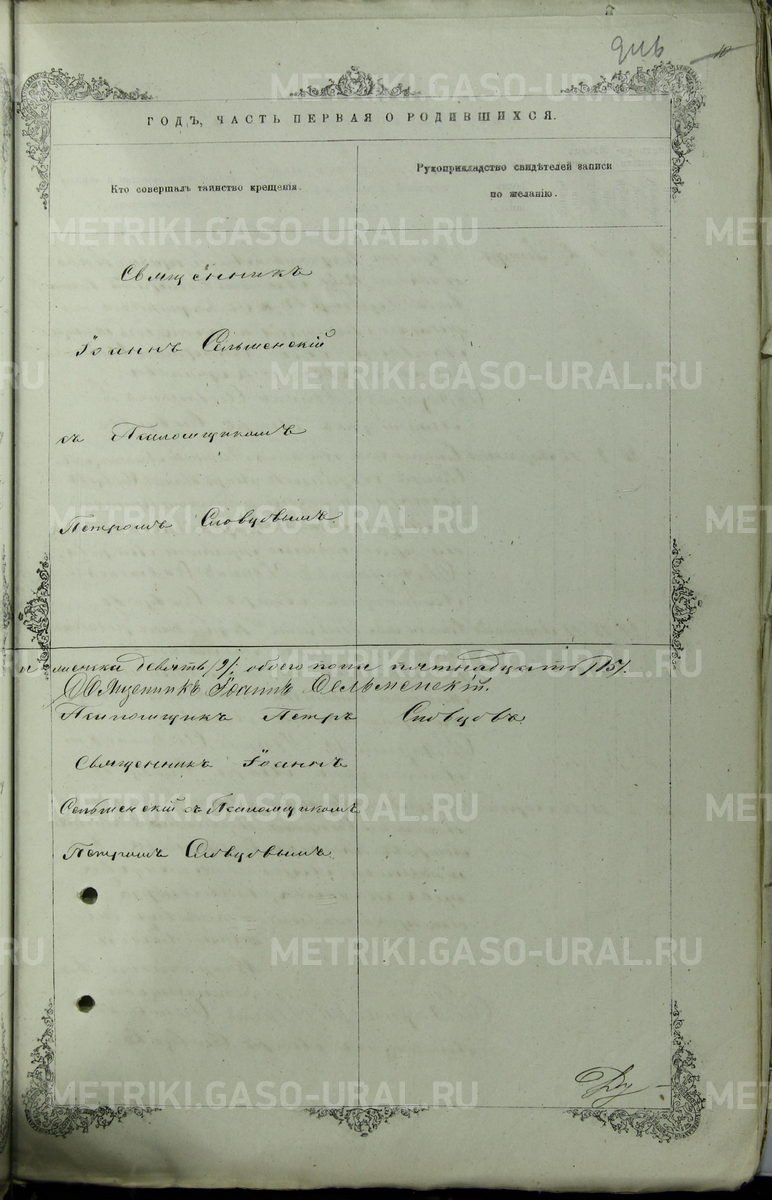 ГОДЪ, ЧАСТЬ ПЕРВАЯ О РОДИВШИХСЯ.
Кто совершалъ таинство крещенія.
Рукоприкладство свидѣтелей записи
по желанію.
Священникъ
Іоаннъ Сельменскій
съ Псаломщикомъ
Петромъ Словцовымъ.
и женска девять /9/, обоего пола пятнадцать /15/.
Священникъ Іоаннъ Сельменскій.
Псаломщикъ Петръ Словцовъ.
Священникъ Іоаннъ
Сельменскій съ Псаломщикомъ
Петромъ Словцовымъ.
METRIKI.GASO-URAL.RU